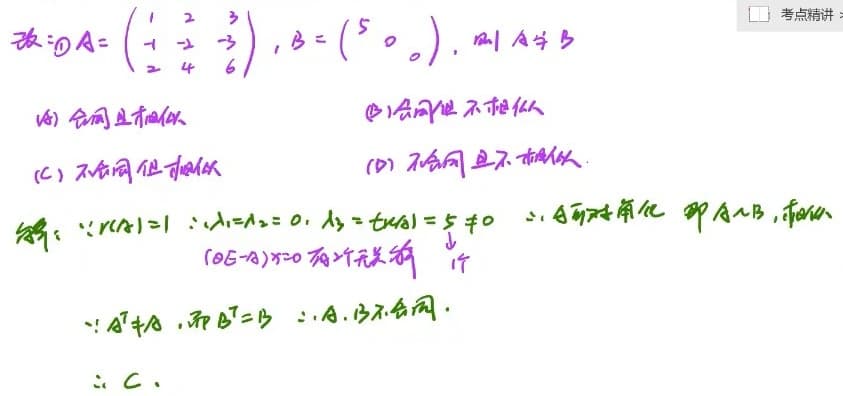 考点精讲
改:① A=(1 2 3; -1 -2 -3; 2 4 6), B=(5 0 0), 则 A与B
(A) 合同且相似 (B) 合同但不相似
(C) 不合同但相似 (D) 不合同且不相似.
解: ∵r(A)=1 ∴λ₁=λ₂=0, λ₃=tr(A)=5≠0 ∴A可对角化 即A~B, 相似
(0E-A)x=0 有2个无关解 ↓ 1个
∵Aᵀ≠A, 而Bᵀ=B ∴A.B不合同.
∴ C.